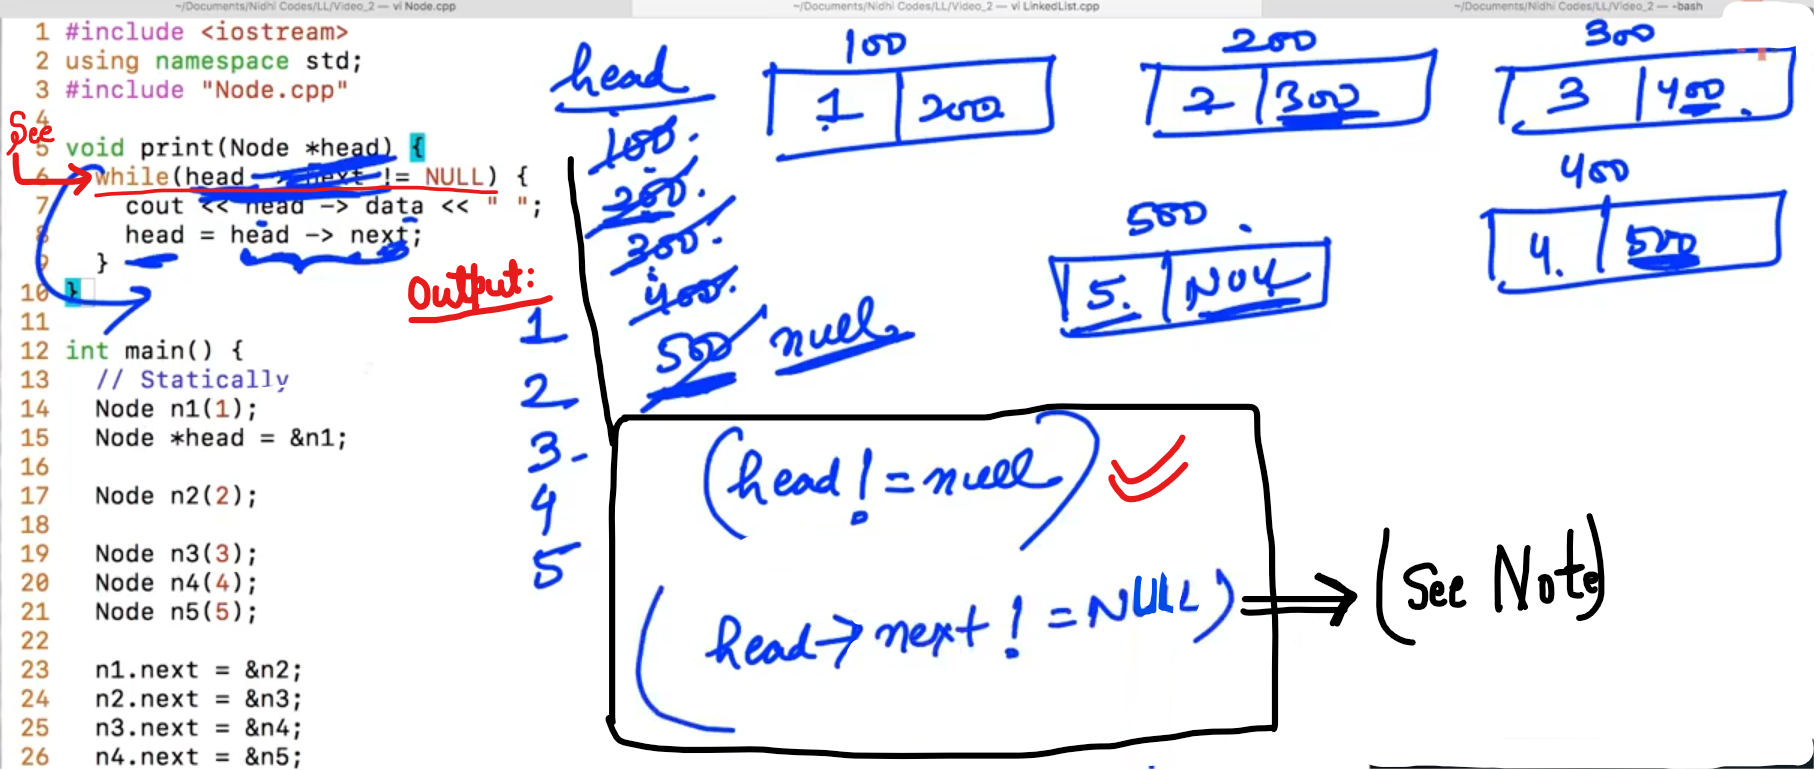 ~/Documents/Nidhi Codes/LL/Video_2 — vi Node.cpp
~/Documents/Nidhi Codes/LL/Video_2 — vi LinkedList.cpp
~/Documents/Nidhi Codes/LL/Video_2 — -bash
1 #include <iostream>
2 using namespace std;
3 #include "Node.cpp"
4
See
5 void print(Node *head) {
6 while(head -> next != NULL) {
7 cout << head -> data << " ";
8 head = head -> next;
9 }
10 }
11
12 int main() {
13 // Statically
14 Node n1(1);
15 Node *head = &n1;
16
17 Node n2(2);
18
19 Node n3(3);
20 Node n4(4);
21 Node n5(5);
22
23 n1.next = &n2;
24 n2.next = &n3;
25 n3.next = &n4;
26 n4.next = &n5;
Output:
1
2
3
4
5
head
100
200
300
400
500 null
100
1 200
200
2 300
300
3 400
400
4 500
500
5 NULL
(head != null)
(head -> next != NULL)
(See Note)